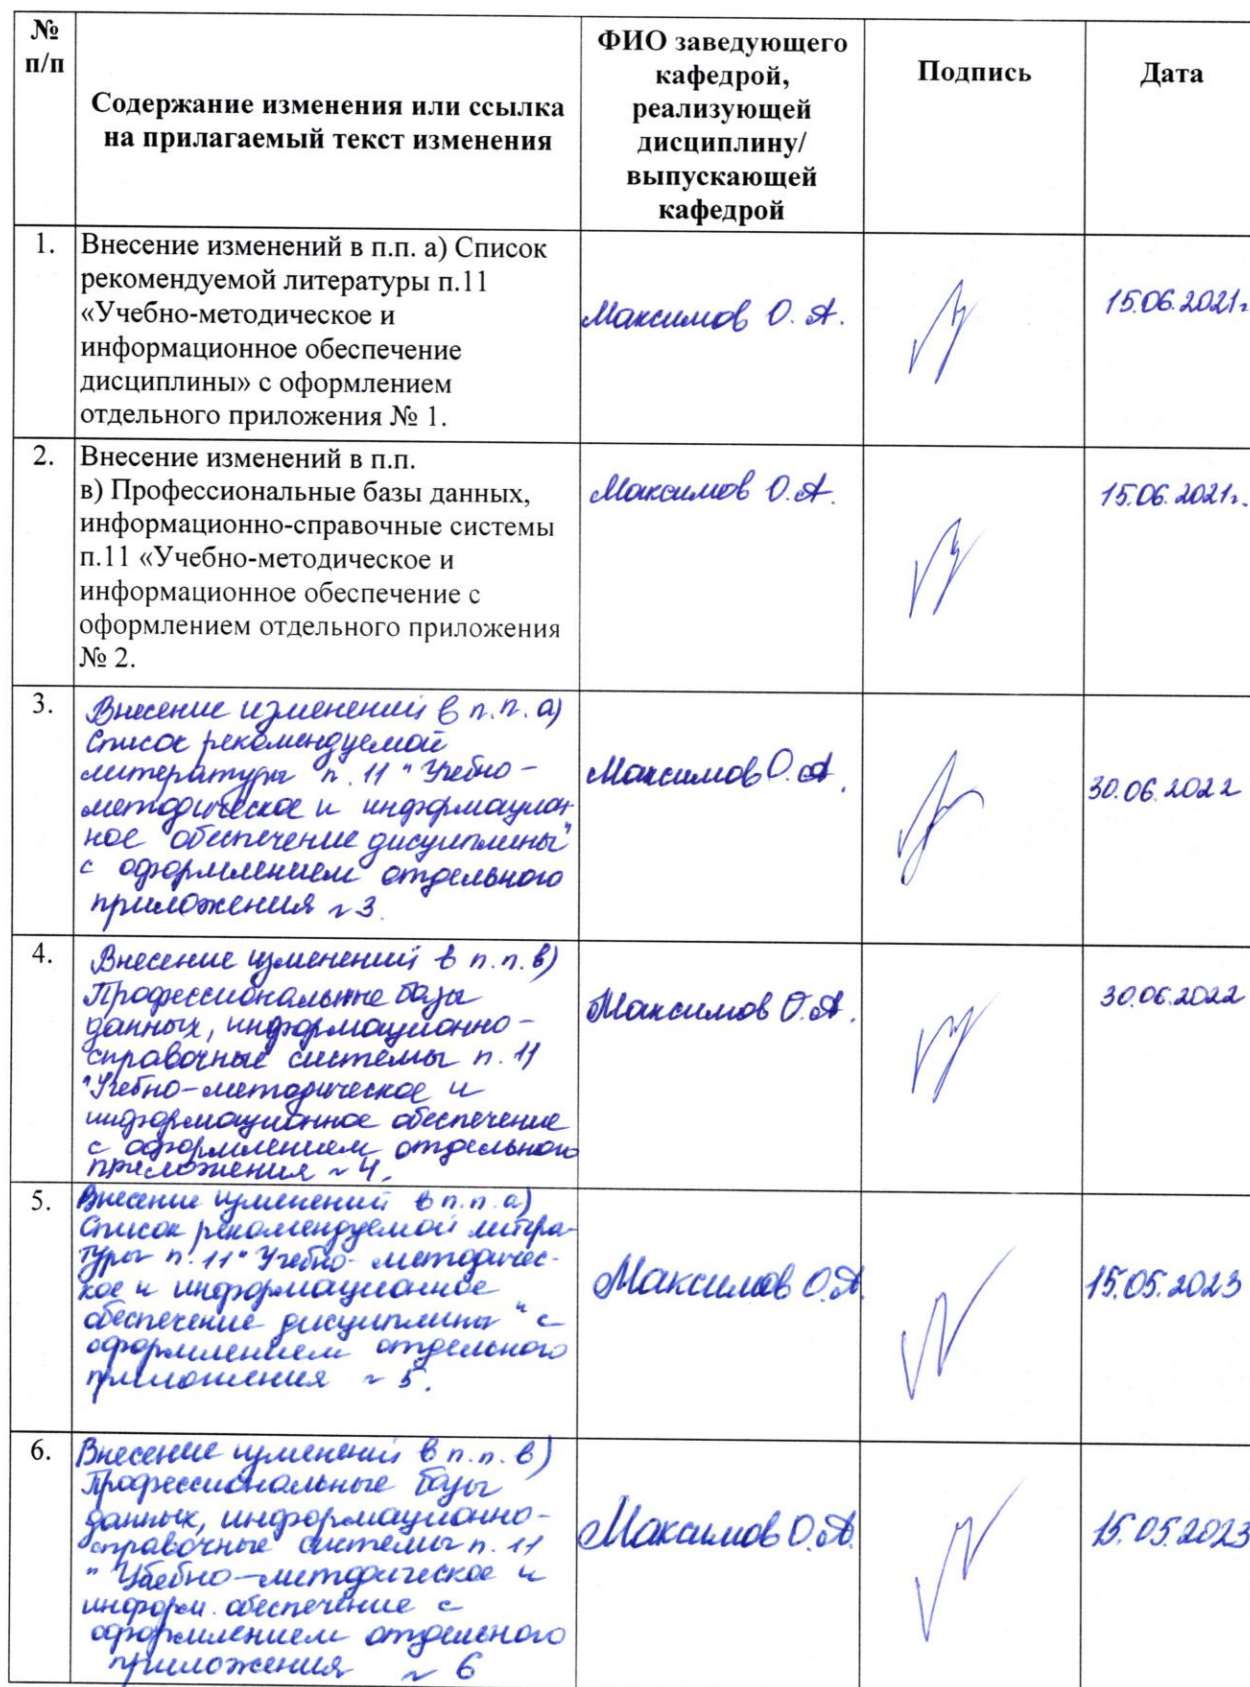 №
п/п
Содержание изменения или ссылка
на прилагаемый текст изменения
ФИО заведующего
кафедрой,
реализующей
дисциплину/
выпускающей
кафедрой
Подпись
Дата
1.
Внесение изменений в п.п. а) Список
рекомендуемой литературы п.11
«Учебно-методическое и
информационное обеспечение
дисциплины» с оформлением
отдельного приложения № 1.
Максимов О.А.
15.06.2021г
2.
Внесение изменений в п.п.
в) Профессиональные базы данных,
информационно-справочные системы
п.11 «Учебно-методическое и
информационное обеспечение с
оформлением отдельного приложения
№ 2.
Максимов О.А.
15.06.2021г.
3.
Внесение изменений в п.п. а)
Список рекомендуемой
литературы п. 11 "Учебно-
методическое и информацион-
ное обеспечение дисциплины"
с оформлением отдельного
приложения №3.
Максимов О.А.
30.06.2022
4.
Внесение изменений в п.п. в)
Профессиональные базы
данных, информационно-
справочные системы п. 11
"Учебно-методическое и
информационное обеспечение
с оформлением отдельного
приложения №4.
Максимов О.А.
30.06.2022
5.
Внесение изменений в п.п. а)
Список рекомендуемой литера-
туры п. 11 "Учебно-методичес-
кое и информационное
обеспечение дисциплины" с
оформлением отдельного
приложения № 5.
Максимов О.А.
15.05.2023
6.
Внесение изменений в п.п. в)
Профессиональные базы
данных, информационно-
справочные системы п. 11
"Учебно-методическое и
информ. обеспечение с
оформлением отдельного
приложения № 6
Максимов О.А.
15.05.2023